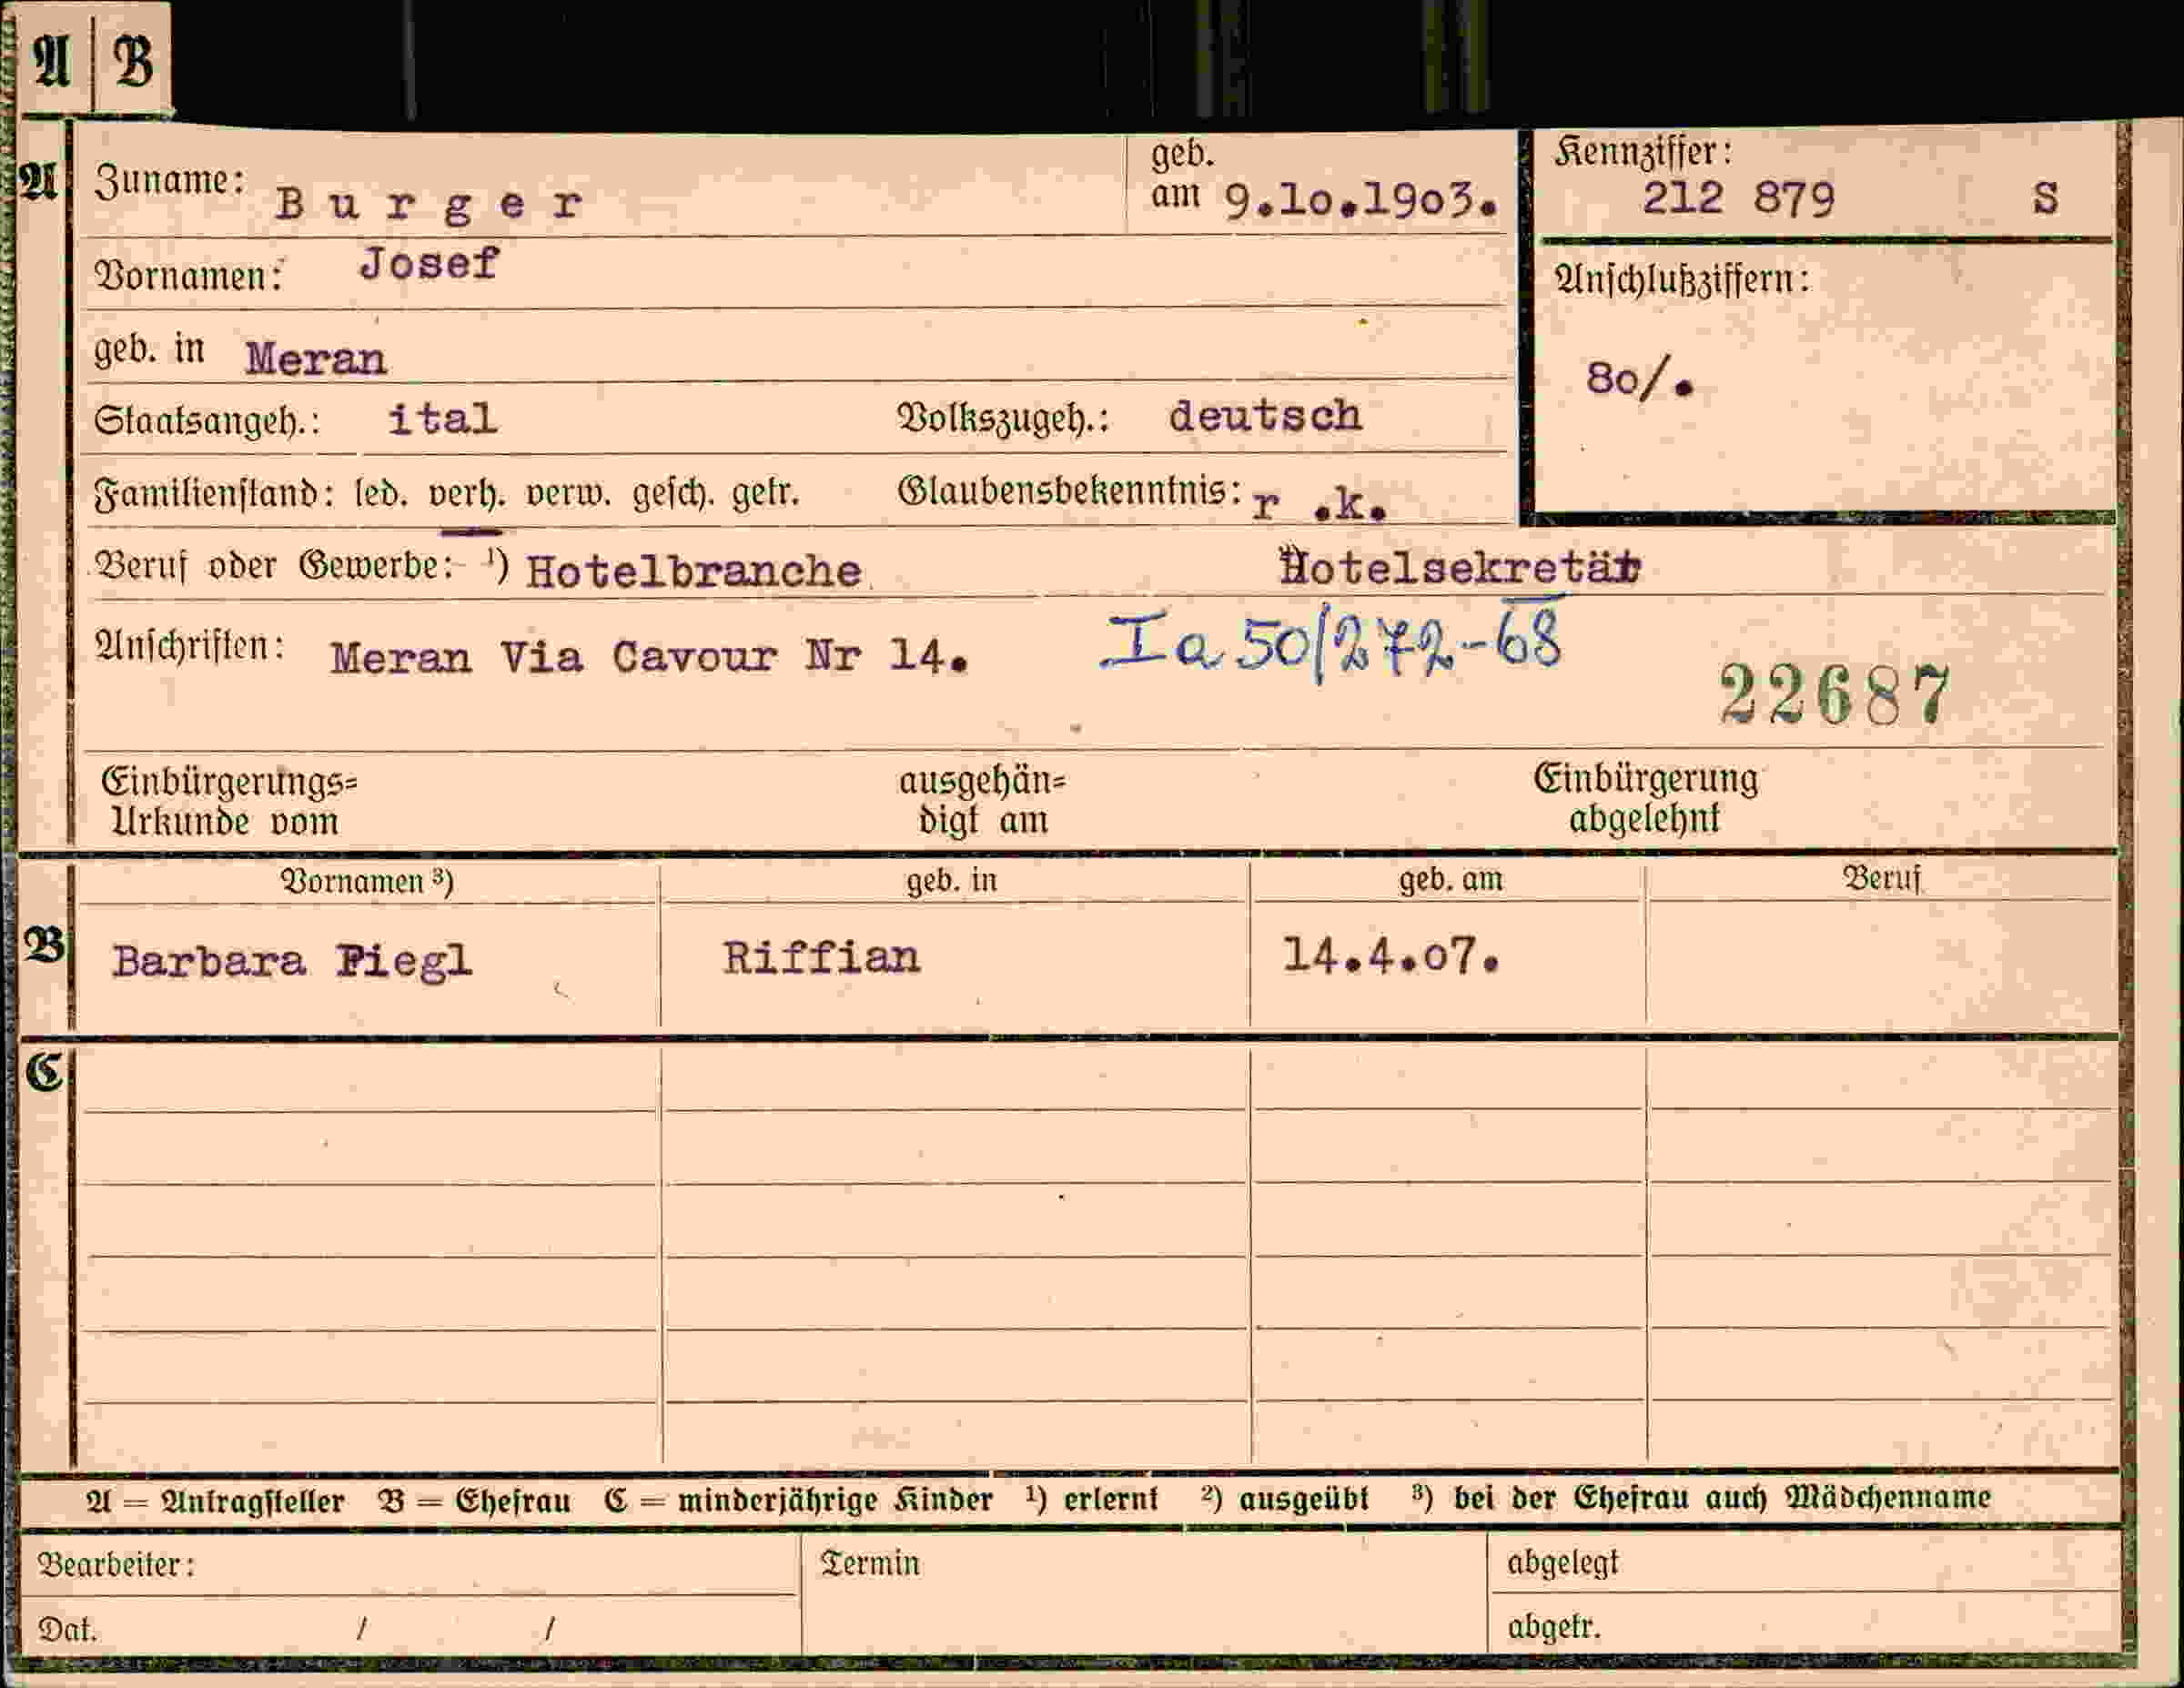 A B
A Zuname: Burger geb. am 9.10.1903. Kennziffer: 212 879 S
Vornamen: Josef Anschlußziffern:
geb. in Meran 80/.
Staatsangeh.: ital Volkszugeh.: deutsch
Familienstand: led. verh. verw. gesch. getr. Glaubensbekenntnis: r .k.
Beruf oder Gewerbe: ¹) Hotelbranche Hotelsekretär
Anschriften: Meran Via Cavour Nr 14. Ia 50/272-68
22687
Einbürgerungs= ausgehän= Einbürgerung
Urkunde vom digt am abgelehnt
Vornamen ³) geb. in geb. am Beruf
B Barbara Piegl Riffian 14.4.07.
C
A = Antragsteller B = Ehefrau C = minderjährige Kinder ¹) erlernt ²) ausgeübt ³) bei der Ehefrau auch Mädchenname
Bearbeiter: Termin abgelegt
Dat. / / abgetr.